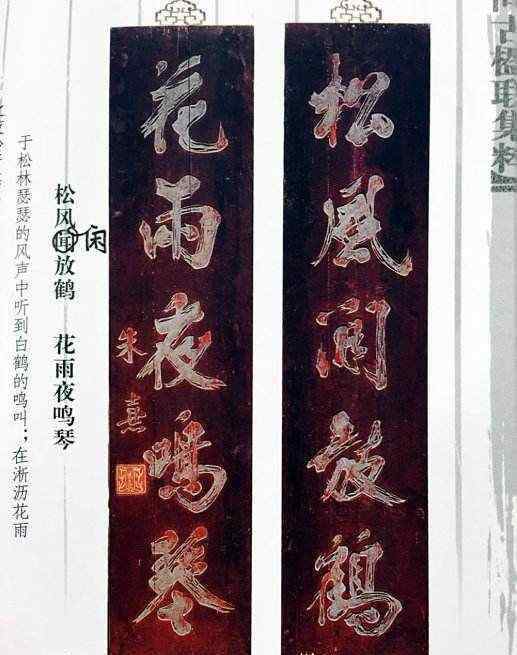 联集
松風閒放鶴
花雨夜鳴琴
朱熹
闲
松风闻放鹤 花雨夜鸣琴
于松林瑟瑟的风声中听到白鹤的鸣叫；在淅沥花雨